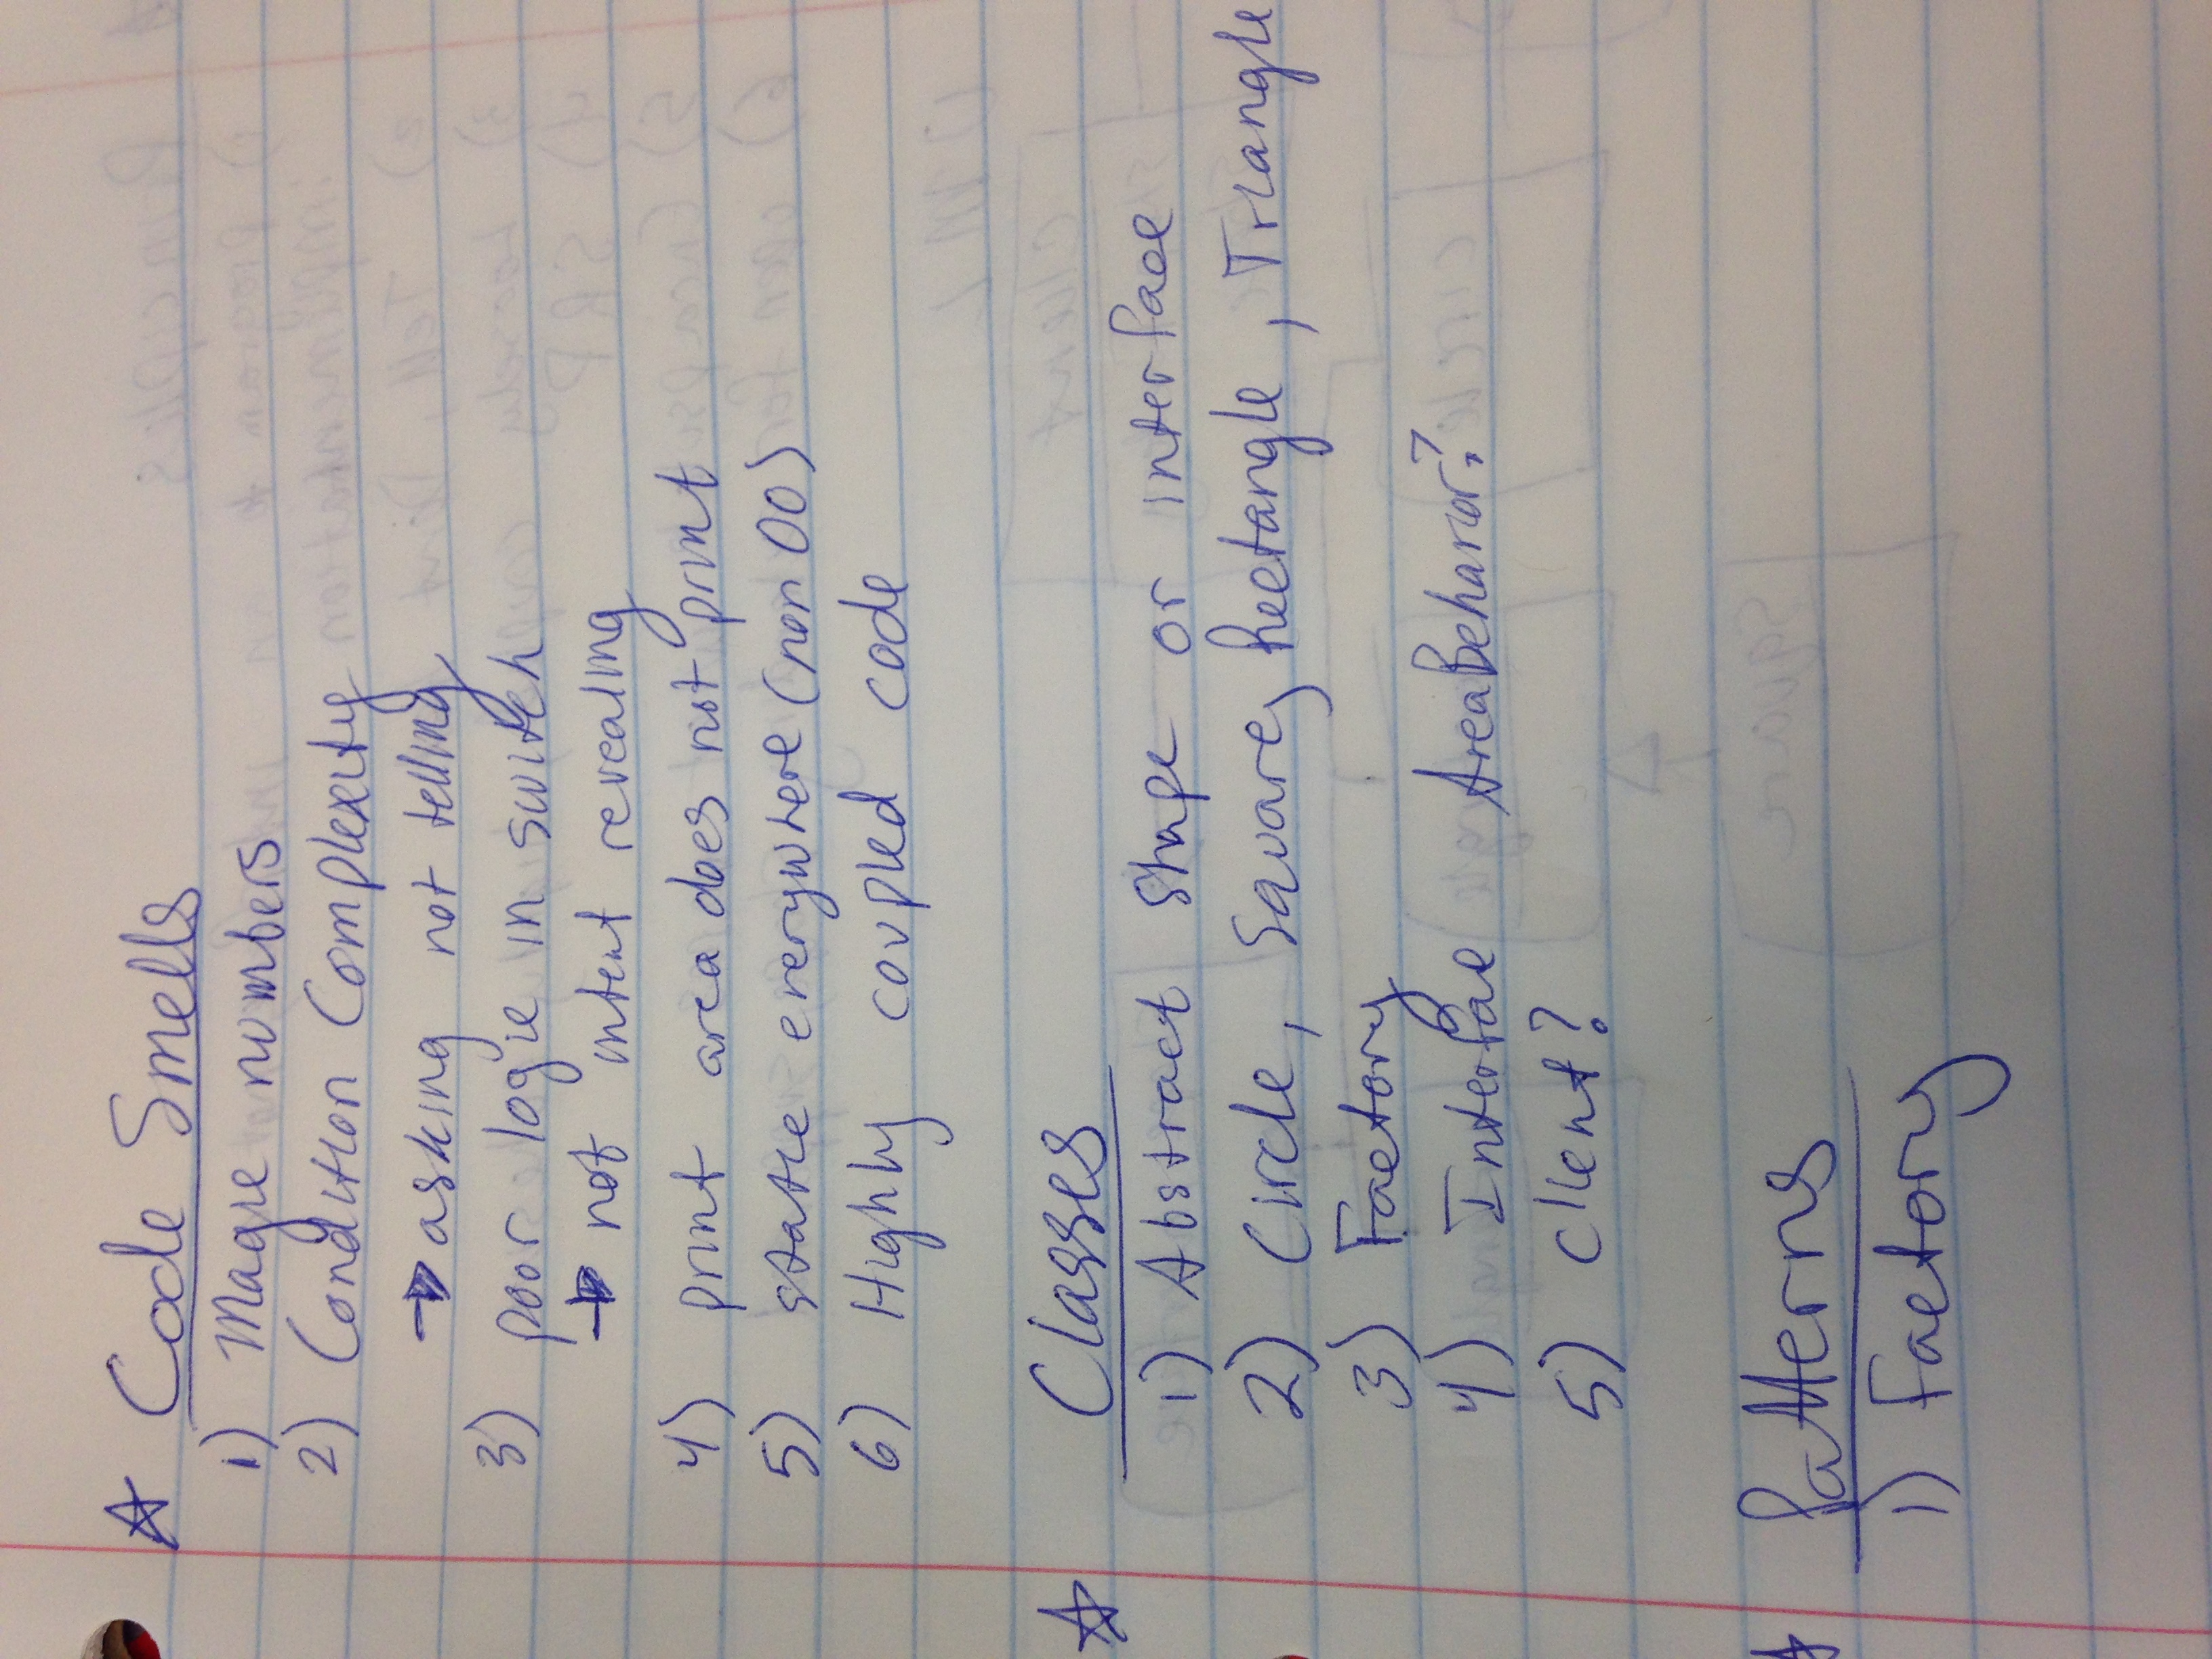 ☆ Code Smells
1) Magic numbers
2) Condition Complexity
→ asking not telling
3) poor logic in switch
→ not intent revealing
4) print area does not print
5) static everywhere (non OO)
6) Highly coupled code
☆ Classes
1) Abstract Shape or interface
2) Circle, Square, Rectangle, Triangle
3) Factory
4) Interface AreaBehavior?
5) Client?
☆ Patterns
1) Factory